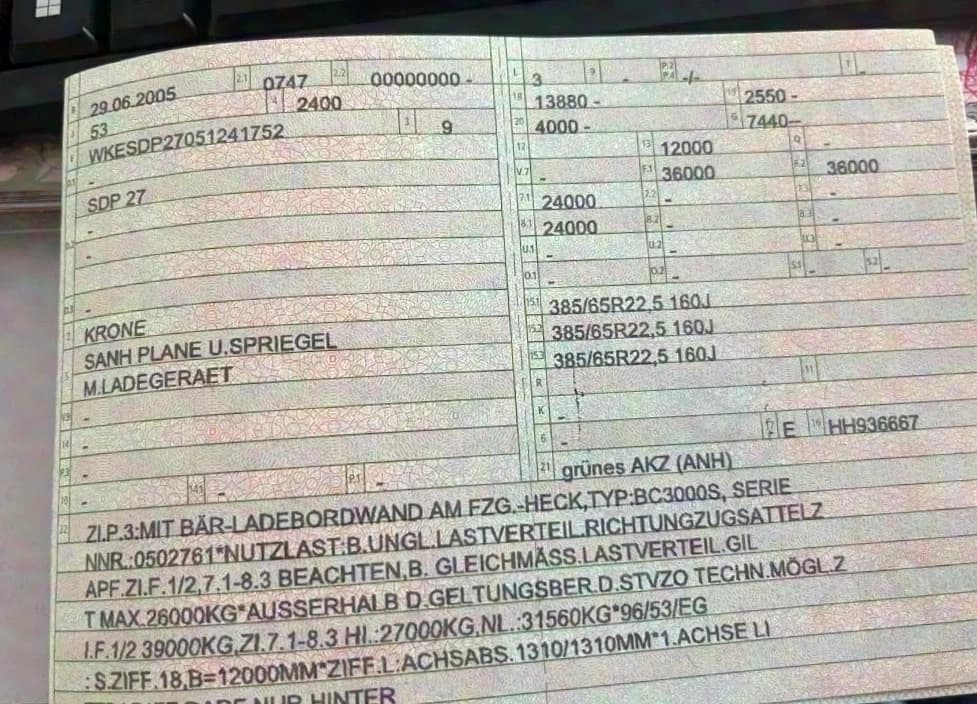 B 29.06.2005 2.1 0747 2.2 00000000 -
J 53 4 2400
E WKESDP27051241752 3 9
D.1 -
SDP 27
D.2 -
-
-
D.3 -
2 KRONE
5 SANH PLANE U.SPRIEGEL
M.LADEGERAET
V.9 -
14 -
P.3 -
10 - 14.1 - P.1 -
L 3 9 - P.2 P.4 -/- T -
18 13880 - 19 2550 -
20 4000 - G 7440-
12 13 12000 Q -
V.7 - F.1 36000 F.2 36000
7.1 24000 7.2 - 7.3 -
8.1 24000 8.2 - 8.3 -
U.1 - U.2 - U.3 -
O.1 - O.2 - S.1 - S.2 -
15.1 385/65R22,5 160J
15.2 385/65R22,5 160J
15.3 385/65R22,5 160J
R 11
K -
6 - 17 E 16 HH936667
21 grünes AKZ (ANH)
22 ZI.P.3:MIT BÄR-LADEBORDWAND AM FZG.-HECK,TYP:BC3000S, SERIE
NNR.:0502761*NUTZLAST:B.UNGL.LASTVERTEIL.RICHTUNGZUGSATTELZ
APF.ZI.F.1/2,7.1-8.3 BEACHTEN,B. GLEICHMÄSS.LASTVERTEIL.GIL
T MAX.26000KG*AUSSERHALB D.GELTUNGSBER.D.STVZO TECHN.MÖGL.Z
I.F.1/2 39000KG,ZI.7.1-8.3 HI.:27000KG,NL.:31560KG*96/53/EG
: S.ZIFF.18,B=12000MM*ZIFF.L:ACHSABS.1310/1310MM*1.ACHSE LI
NUR HINTER